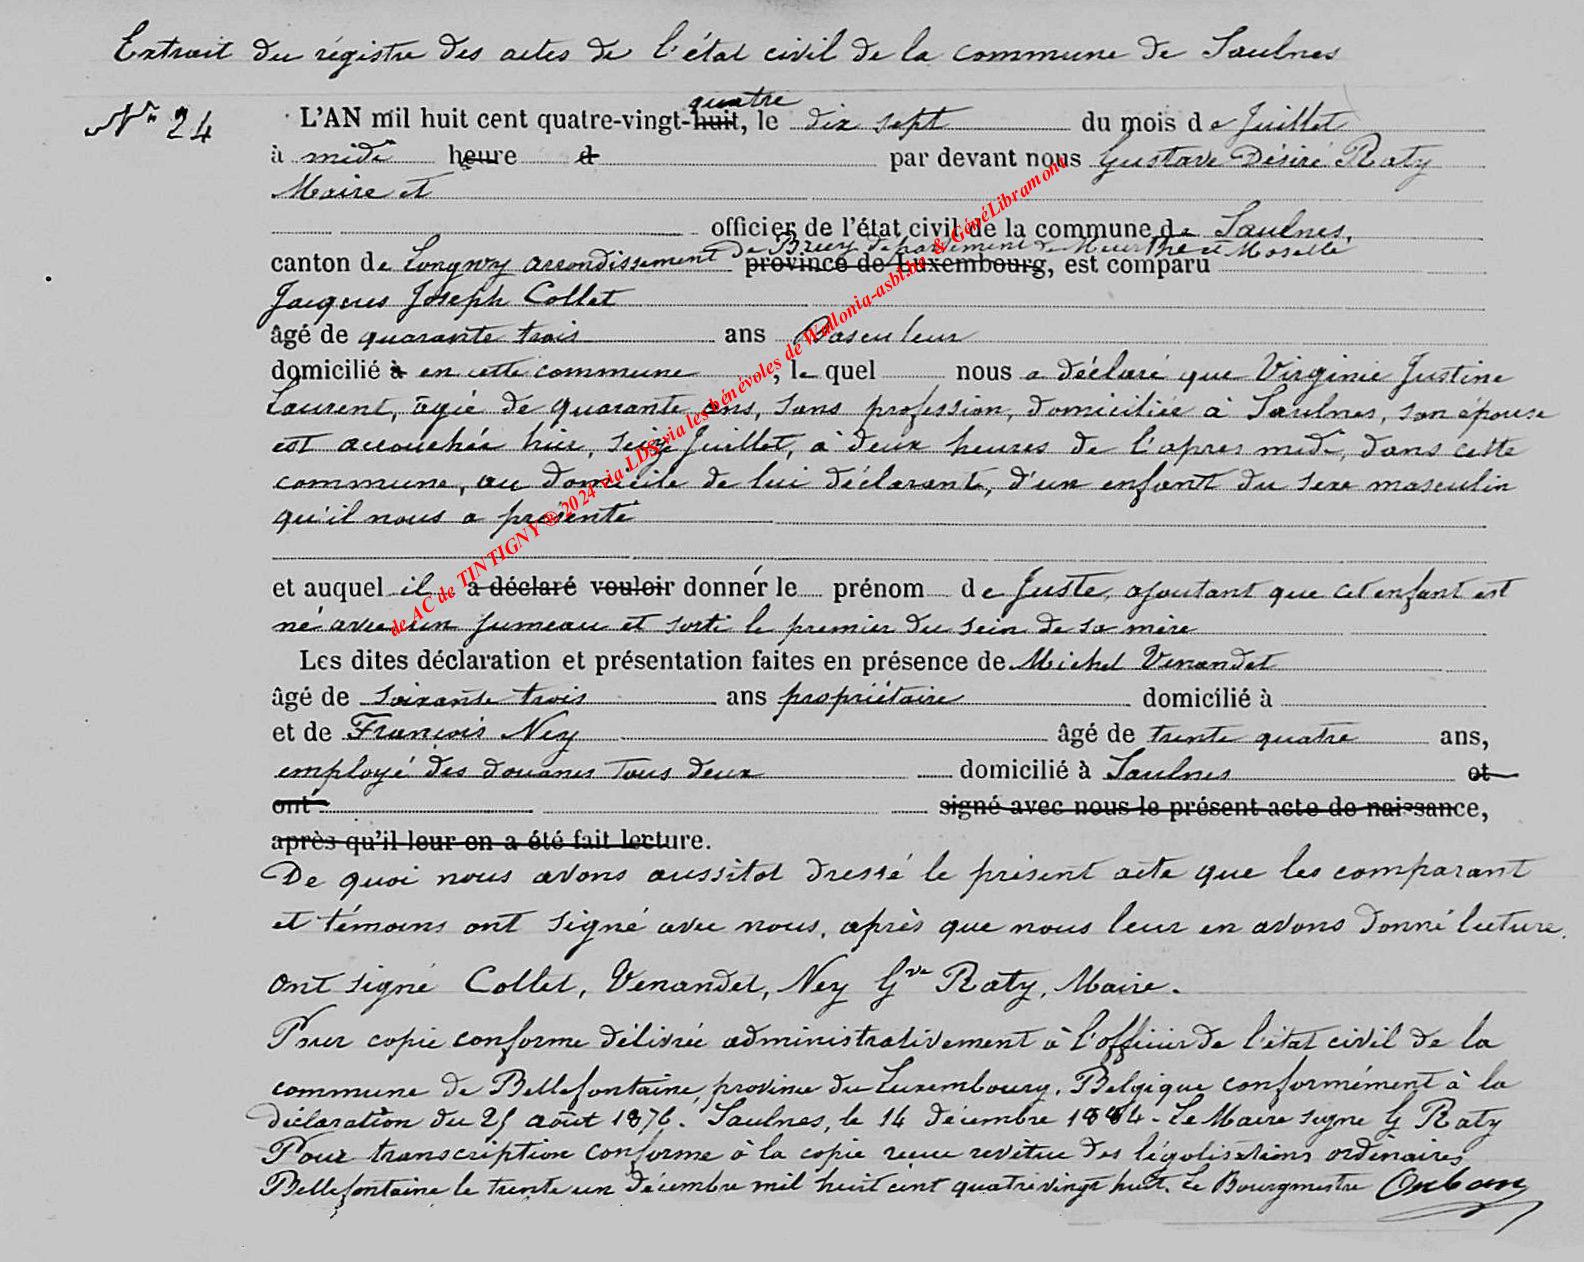 Extrait du régistre des actes de l'état civil de la commune de Saulnes
quatre
N° 24 L'AN mil huit cent quatre-vingt-huit, le dix sept du mois de Juillet
à midi heure d par devant nous Gustave Désiré Raty
Maire et
officier de l'état civil de la commune de Saulnes,
de Briey département de Meurthe et Moselle
canton de Longwy arrondissement province de Luxembourg, est comparu
Jacques Joseph Collet
âgé de quarante trois ans Basculeur
domicilié à en cette commune, le quel nous a déclaré que Virginie Justine
Laurent, agée de quarante ans, sans profession, domiciliée à Saulnes, son épouse
est accouchée hier, seize Juillet, à deux heures de l'apres midi, dans cette
commune, au domicile de lui déclarant, d'un enfant du sexe masculin
qu'il nous a présenté
et auquel il a déclaré vouloir donner le prénom de Juste, ajoutant que cet enfant est
né avec un jumeau et sorti le premier du sein de sa mère
Les dites déclaration et présentation faites en présence de Michel Venandet
âgé de soixante trois ans propriétaire domicilié à
et de François Ney âgé de trente quatre ans,
employé des douanes tous deux domicilié à Saulnes et
ont signé avec nous le présent acte de naissance,
après qu'il leur en a été fait lecture.
De quoi nous avons aussitot dressé le présent acte que les comparant
et témoins ont signé avec nous, après que nous leur en avons donné lecture.
Ont signé Collet, Venandet, Ney Gve Raty, Maire.
Pour copie conforme délivrée administrativement à l'officier de l'état civil de la
commune de Bellefontaine, province du Luxembourg, Belgique conformément à la
déclaration du 25 août 1876. Saulnes, le 14 décembre 1884. Le Maire signe G Raty
Pour transcription conforme à la copie reçue revêtue des légalisations ordinaires
Bellefontaine le trente un décembre mil huit cent quatre vingt huit. Le Bourgmestre
de AC de TINTIGNY ® 2024 via LDS via les bénévoles de Wallonia-asbl.be & GénéLibramont